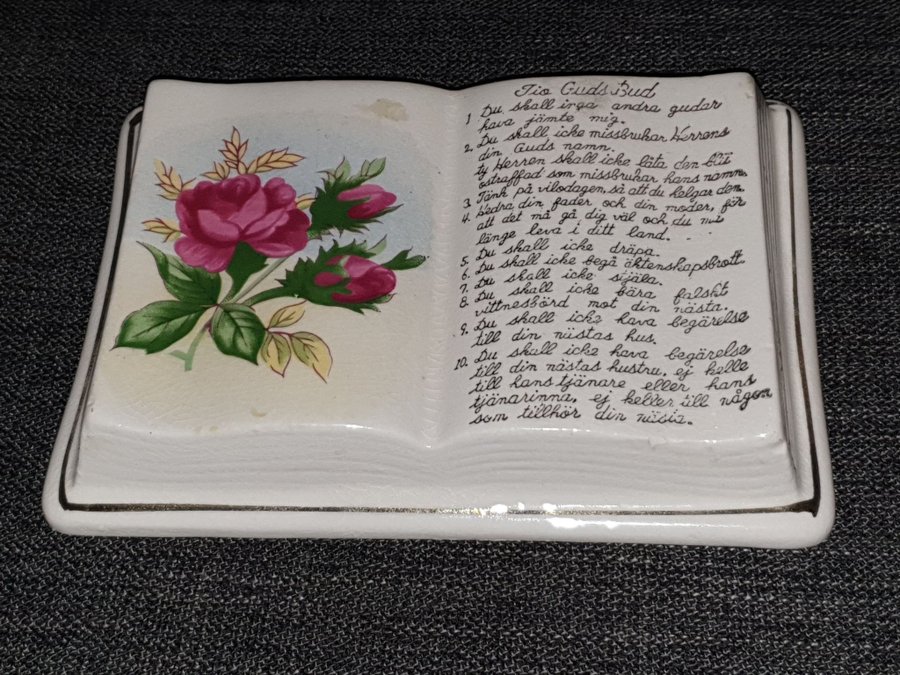 Tio Guds Bud
1 Du skall inga andra gudar
hava jämte mig.
2. Du skall icke missbrukar Herrens
din Guds namn.
ty Herren skall icke låta den bli
ostraffad som missbrukar hans namn.
3. Tänk på vilodagen, så att du helgar den.
4. Hedra din fader och din moder, för
att det må gå dig väl och du må
länge leva i ditt land. . . .
5. Du skall icke dräpa.
6. Du skall icke begå äktenskapsbrott.
7. Du skall icke stjäla.
8. Du skall icke bära falskt
vittnesbörd mot din nästa.
9. Du skall icke hava begärelse
till din nästas hus.
10. Du skall icke hava begärelse
till din nästas hustru, ej heller
till hans tjänare eller hans
tjänarinna, ej heller till någon
som tillhör din nästa.